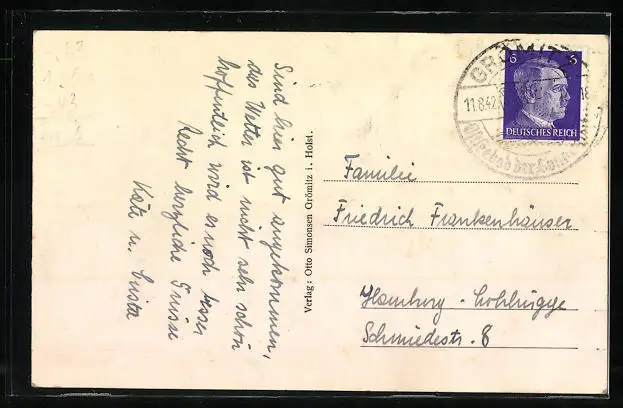 Sind hier gut angekommen,
das Wetter ist nicht sehr schön
hoffentlich wird es noch besser
Recht herzliche Grüsse
Käte u.
Verlag: Otto Simonsen Grömitz i. Holst.
GRÖMITZ
11.8.42
Ostseebad der Sonne
6 6
DEUTSCHES REICH
Familie
Friedrich Frankenhäuser
Hamburg - Lohbrügge
Schmiedestr. 8